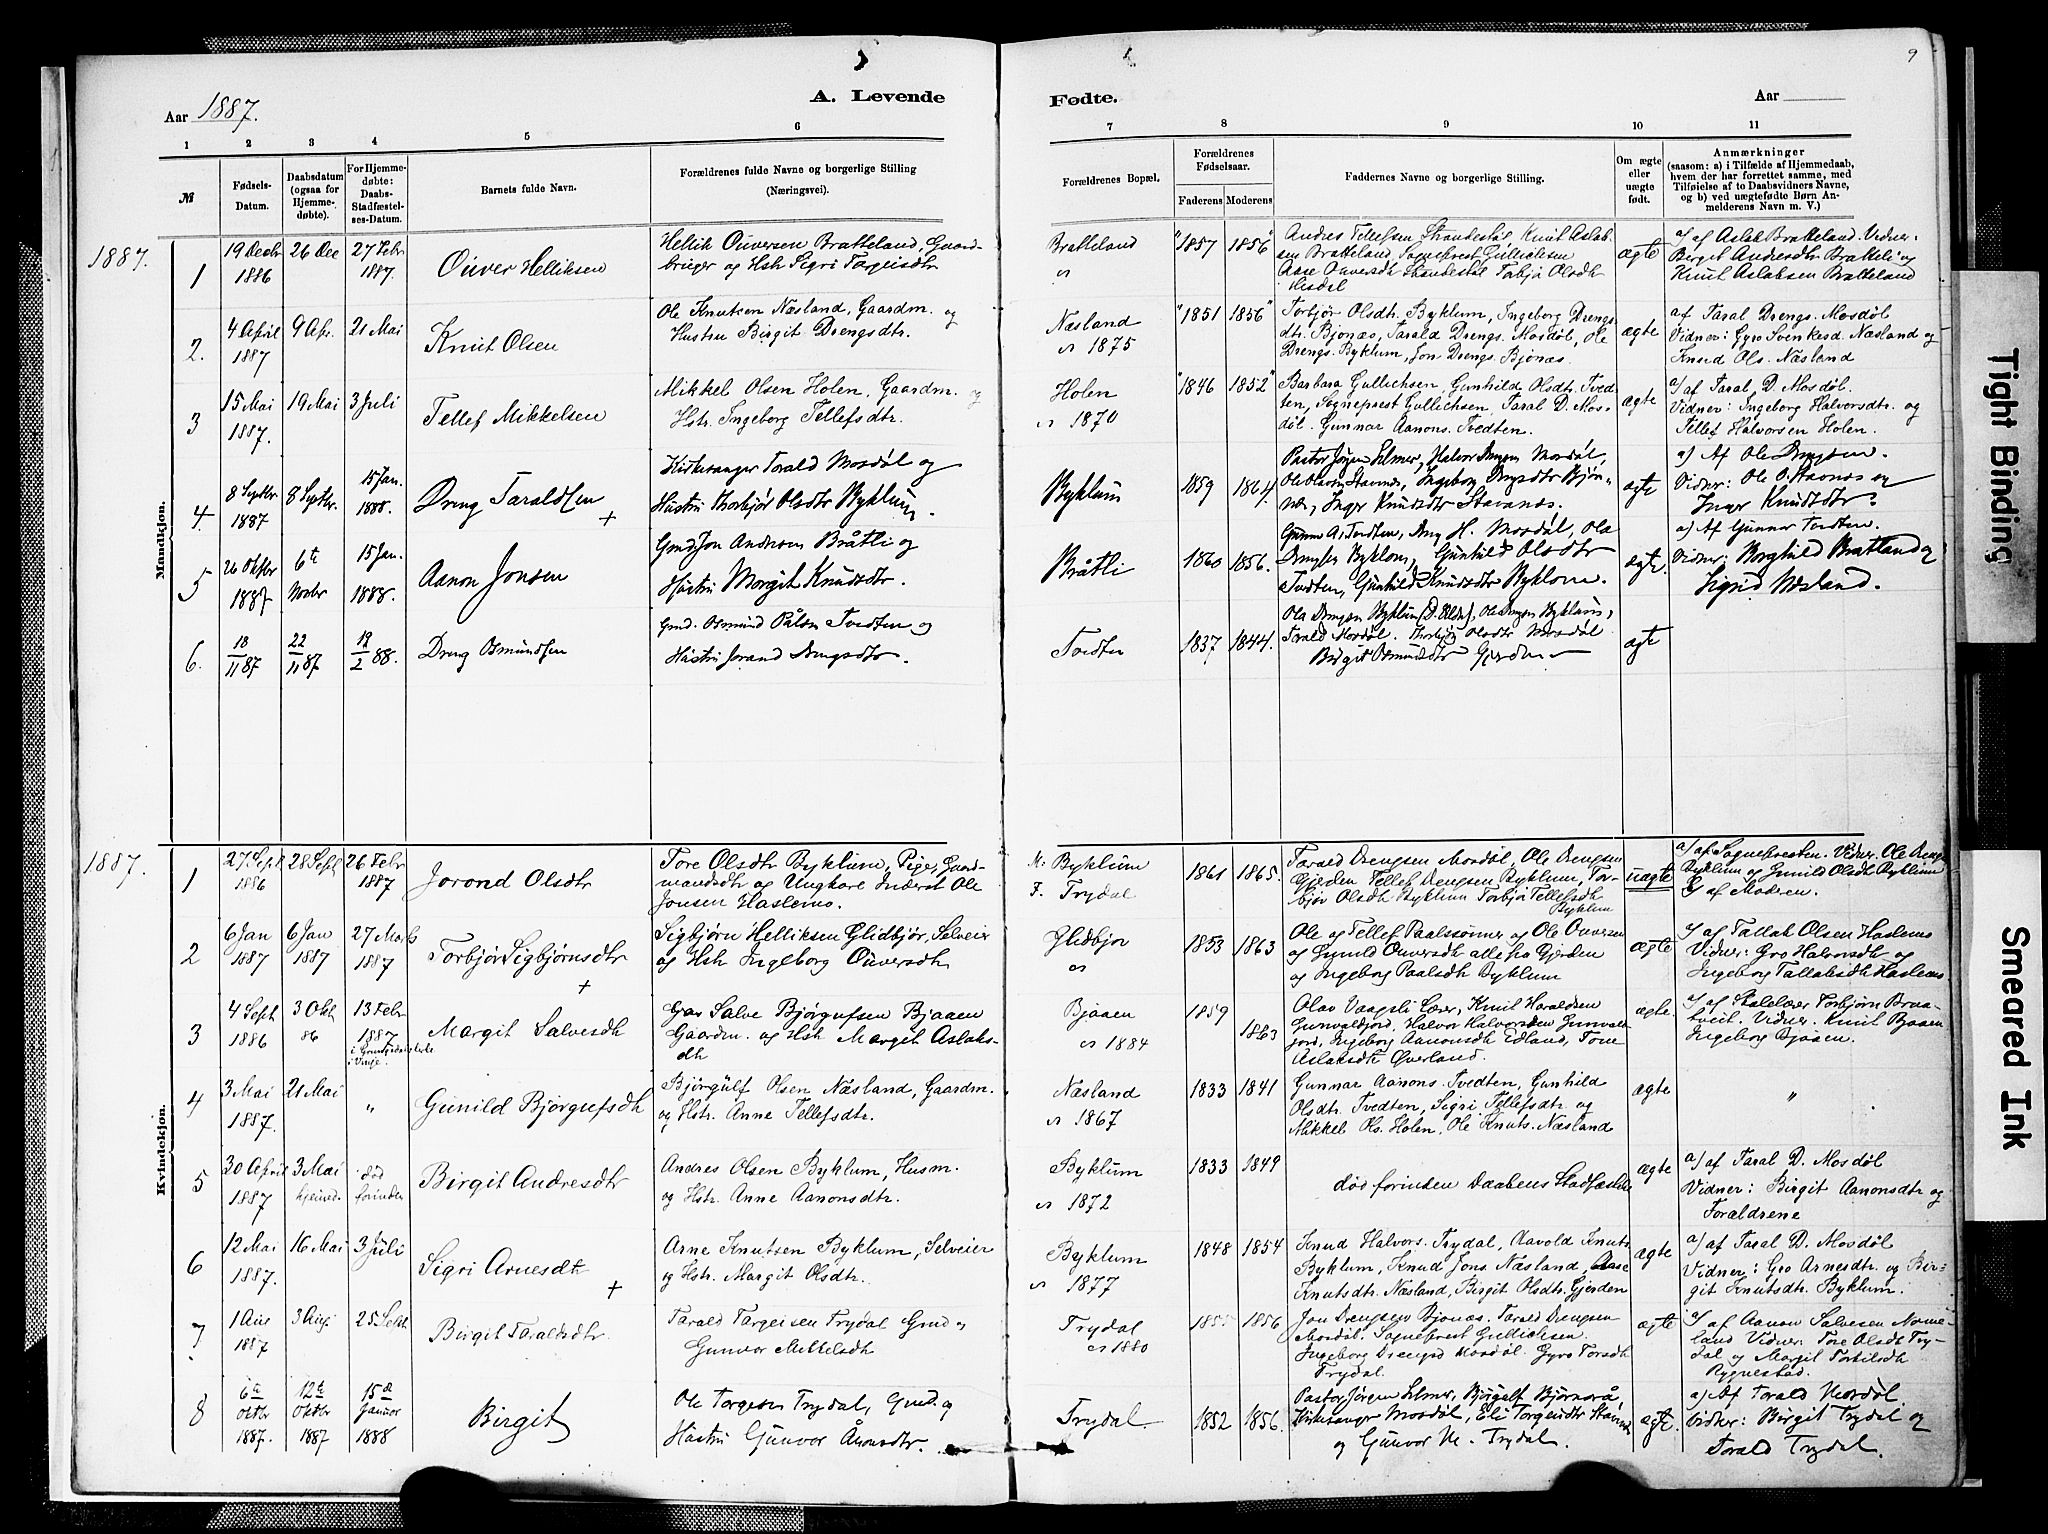 9
Aar 1887.
A. Levende
Fødte.
Aar
1 2 3 4 5 6 7 8 9 10 11
№
Fødsels-Datum.
Daabsdatum (ogsaa for Hjemmedøbte).
For Hjemmedøbte: Daabs-Stadfæstelses-Datum.
Barnets fulde Navn.
Forældrenes fulde Navne og borgerlige Stilling (Næringsvei).
Forældrenes Bopæl.
Forældrenes Fødselsaar.
Faderens Moderens
Faddernes Navne og borgerlige Stilling.
Om ægte eller uægte født.
Anmærkninger
(saasom: a) i Tilfælde af Hjemmedaab, hvem der har forrettet samme, med Tilføielse af to Daabsvidners Navne, og b) ved uægtefødte Børn Anmelderens Navn m. V.)
1887.
Mandkjøn.
1 19 Decbr 1886 26 Dec 27 Febr. 1887. Ouver Helliksen
Hellik Ouversen Bratteland, Gaardbruger og Hstr Sigri Targeisdtr
Bratteland "1857 1856"
Andres Tellefsen Strandestøl Knut Aslaksen Bratteland, Sogneprest Gullichsen
Aase Ouversdtr Strandestøl Torbjør Olsdtr
ægte
a/ af Aslak Bratteland. Vidner:
Bergit Andersdtr Bratteli og
Knut Aslaksen Bratteland
2. 4 April 1887 9 Apr. 21 Mai Knut Olsen
Ole Knutsen Næsland, Gaardm. og
Hustru Birgit Drengsdtr.
Næsland 1875 "1851 1856"
Torbjør Olsdtr. Byklum, Ingeborg Drengsdtr. Bjønæs, Tarald Drengs. Mosdøl, Ole
Drengs. Byklum, Jon Drengs. Bjønæs.
ægte
a/ af Taral Drengs. Mosdøl
Vidner: Gyro Svenkesd. Næsland og
Knud Ols. Næsland
3 15 Mai 1887. 19 Mai 3 Juli Tellef Mikkelsen
Mikkel Olsen Holen, Gaardm. og
Hstr. Ingeborg Tellefsdtr.
Holen 1870 "1846 1852"
Barbara Gullichsen, Gunhild Olsdtr. Tvedten, Sogneprest Gullichsen, Taral D. Mosdøl. Gunnar Aanons. Tvedten.
ægte
a/ af Taral. D. Mosdøl.
Vidner: Ingeborg Halvorsdtr. og
Tellef Halvorsen Holen.
4. 8 Septbr. 1887 8 Septbr. 15 Jan. 1888. Dreng Taraldsen +
Kirkesanger Torald Mosdøl og
Hustru Thorbjør Olsdtr Byklum.
Byklum 1859 1864.
Pastor Jørgen Selmer, Halvor Drengsen Mosdøl,
Ole Olsen Stavnæs, Ingeborg Drengsdtr Bjønnæs, Inger Knudsdtr Stavanæs.
ægte
a) Af Ole Drengsen.
Vidner: Ole O. Stavnæs og
Inger Knudsdtr
5 26 Oktbr 1887 6te Novbr 15 Jan. 1888. Aanon Jonsen
Gmd Jon Andresen Bråtli og
Hustru Margit Knudsdtr.
Bråtli 1860 1856.
Gunnar A. Tvedten, Dreng H. Mosdøl, Ola
Drengsen Byklom, Gunhild Olsdtr
Tvedten, Gunhild Knudsdtr Byklom.
ægte.
a) Af Gunnar Tvedten.
Vidner: Borghild Bratland og
Sigrid Næsland.
6. 18/11 87 22/11 87 19/2 88. Dreng Osmundsen
Gmd. Osmund Pålsen Tvedten og
Hustru Jorand Drengsdtr.
Tvedten 1837 1844.
Ola Drengsen Byklum (d. Eldre), Ole Drengsen Byklum,
Torald Mosdøl. Thorbjør Olsdtr Mosdøl
Birgit Osmundsdtr Gjerden
ægte
1887.
Kvindekjøn.
1 27 Sept 1886 28 Sept 26 Febr 1887 Jorond Olsdtr
Tore Olsdtr Byklum, Pige, Gaardmandsdtr og Ungkarl Inderst Ole
Jonsen Haslemo.
M: Byklum
F. Trydal
1861 1865.
Tarald Drengsen Mosdøl, Ole Drengsen
Gjerden Tellef Drengsen Byklum, Torbjør Olsdtr Byklum Torbjør Tellefsdtr
Byklum
uægte
a/ af Sognepresten. Vidner. Ole Drengs.
Byklum og Gunild Olsdtr Byklum
b/ af Modren.
2 6 Jan 1887 6 Jan 1887 27 Marts 1887 Torbjør Sigbjørnsdtr +
Sigbjørn Helliksen Glidbjør, Selveier
og Hstr Ingeborg Ouversdtr
Glidbjør 1853 1863
Ole og Tellef Paalssønner og Ole Ouversen
og Gunild Ouversdtr alle fra Gjerden
og Ingeborg Paalsdtr Byklum
ægte
a/ af Tallak Olsen Haslemo
Vidner: Gro Halvorsdtr og
Ingeborg Tallaksdtr Haslemo
3 4 Sept 1886 3 Okt 86 13 Febr 1887 Margit Salvesdtr
Salve Bjørgufsen Bjaaen
Gaardm. og Hstr Margit Aslaksdtr
Bjaaen 1884 1859 1863
Olav Vaagsli Lærer, Knut Haraldsen
Gunvaldjord, Halvor Halvorsen Gunvaldjord, Ingeborg Aanonsdtr Edland, Tone
Aslaksdtr Øverland.
ægte.
a/ af Skolelærer Torbjørn Bratveit. Vidner. Knut Bjaaen
Ingeborg Bjaaen.
4 3 Mai 1887. 21 Mai " Gunild Bjørgufsdtr
Bjørgulf Olsen Næsland, Gaardm.
og Hstr. Anne Tellefsdtr.
Næsland 1867 1833 1841
Gunnar Aanons. Tvedten, Gunhild
Olsdtr. Tvedten, Sigri Tellefsdtr. og
Mikkel Ols. Holen, Ole Knuts. Næsland
ægte "
5 30 April 1887 3 Mai hjemmed. død forinden Birgit Andresdtr
Andres Olsen Byklum, Husm.
og Hstr. Anne Aanonsdtr.
Byklum 1872 1833 1849
død forinden Daabens Stadfæstelse
ægte
a/ af Taral D. Mosdøl
Vidner: Birgit Aanonsdtr og
Forældrene
6 12 Mai 1887. 16 Mai 3 Juli Sigri Arnesdtr +
Arne Knutsen Byklum, Selveier
og Hstr. Margit Olsdtr.
Byklum 1877 1848 1854
Knud Halvors. Trydal, Aavold Knuts.
Byklum, Knud Jons. Næsland, Aase
Knutsdtr. Næsland, Birgit Olsdtr. Gjerden
ægte
a/ af Taral D. Mosdøl
Vidner: Gro Arnesdtr. og Birgit Knutsdtr. Byklum.
7 1 Aug 1887 3 Aug 25 Sept Birgit Taraldsdtr
Tarald Targeisen Trydal Gmd og
Gunvor Mikkelsdtr
Trydal 1880 1855 1856
Jon Drengsen Bjønæs. Tarald Drengsen
Mosdøl. Sogneprest Gullichsen.
Ingeborg Drengsd Mosdøl. Gyro Toresdtr
Trydal.
ægte
a/ af Aanon Salvesen Nomeland Vidner: Tore Olsdtr Trydal og Margit Torkilsdtr
Rygnestad.
8 6te Oktbr 1887. 12te Oktbr 1887 15de Januar 1888 Birgit
Ole Torgesen Trydal, Gmd. og
Hustru Gunvor Ånonsdtr.
Trydal 1852 1856.
Pastor Jørgen Selmer, Bjørgulf Bjørnarå,
Kirkesanger Mosdøl, Eli Torgeisdtr
og Gunvor M. Trydal.
ægte.
a) Af Torald Mosdøl
Vidner: Birgit Trydal og
Torald Trydal.
Tight Binding
Smeared Ink